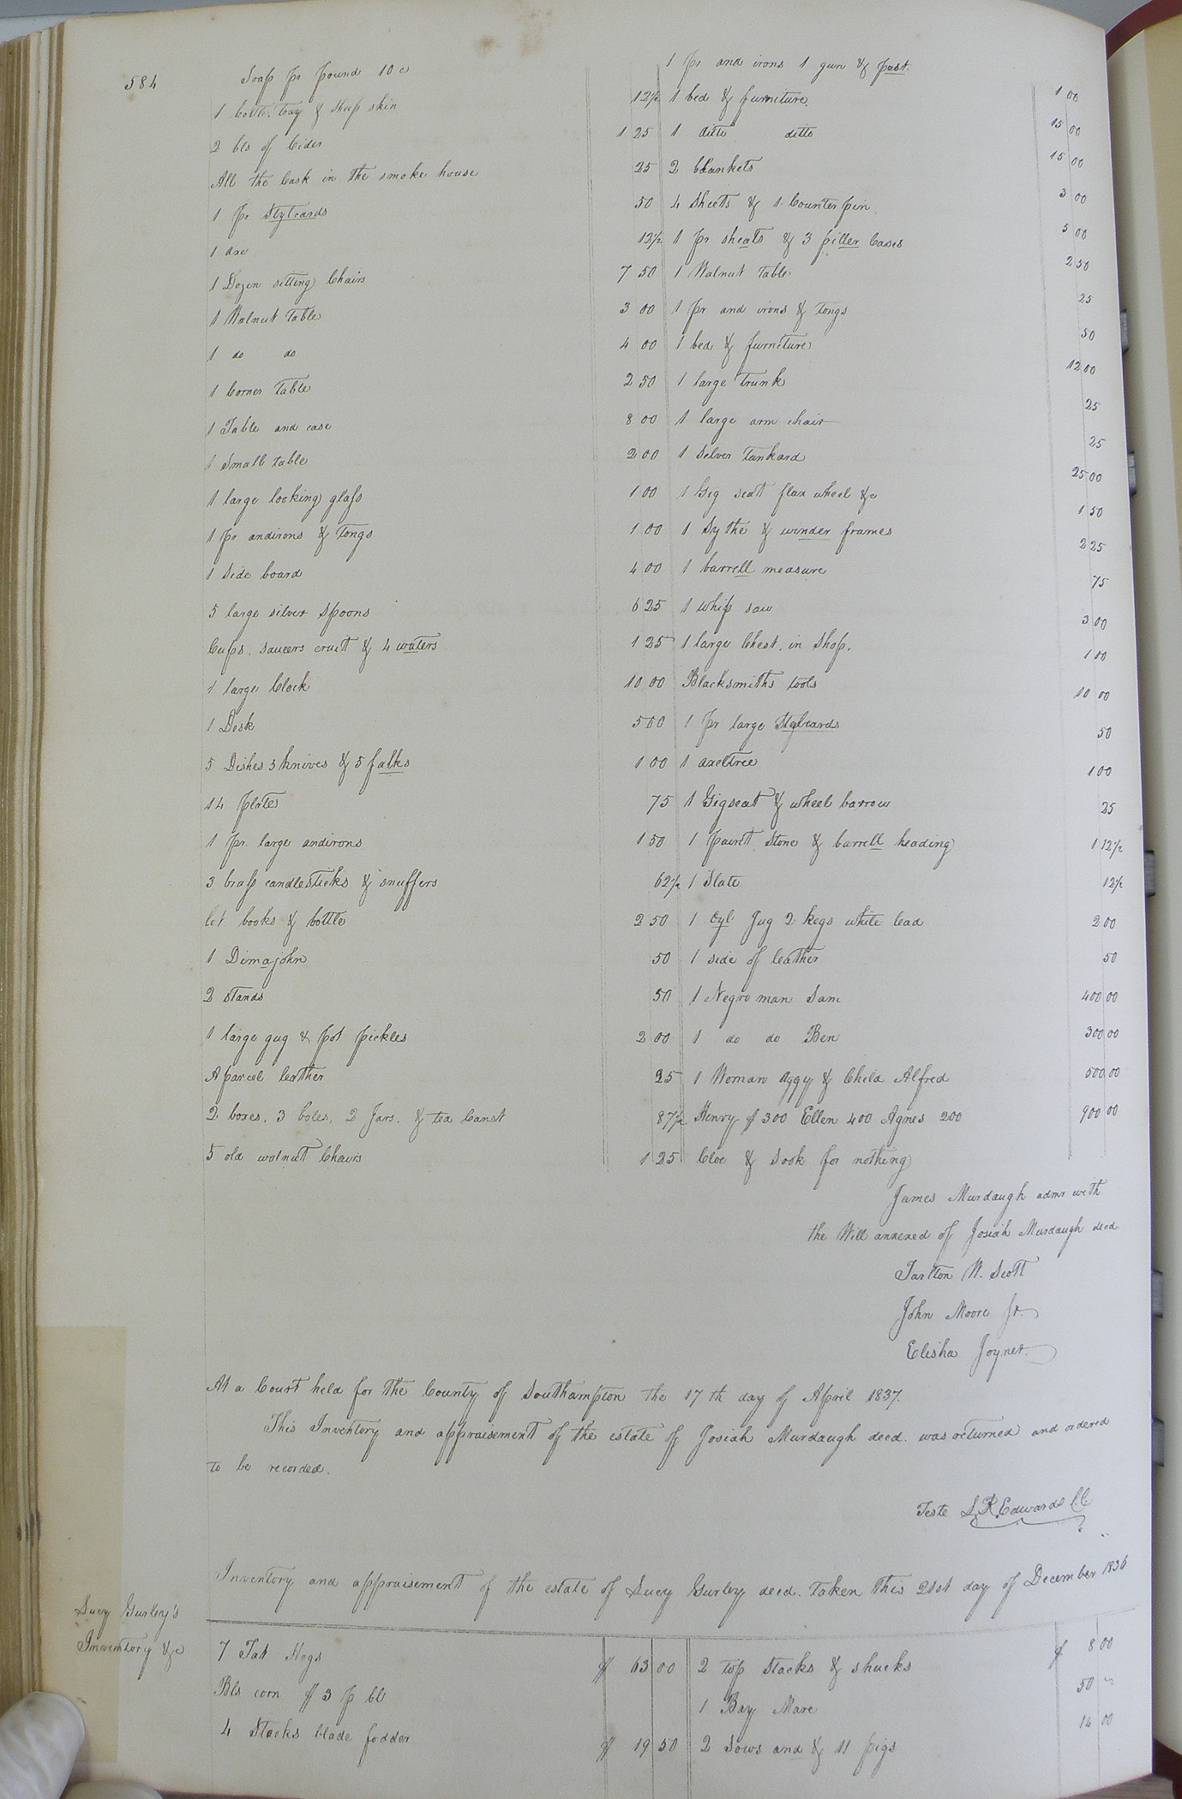 584
Soap pr pound 10 c
1 bottle tray & sheep skin 12½
2 bls of Cider 1 25
All the Cask in the smoke house 25
1 pr Styleards 50
1 axe 12½
1 Dozen sitting Chairs 7 50
1 Walnut Table 3 00
1 do do 4 00
1 Corner Table 2 50
1 Table and case 8 00
1 Small table 2 00
1 large looking glass 1 00
1 pr andirons & Tongs 1 00
1 Side board 4 00
5 large silver Spoons 6 25
Cups, saucers cruet & 4 waters 1 25
1 large Clock 10 00
1 Desk 5 00
5 Dishes 5 knives & 5 falks 1 00
14 plates 75
1 pr. large andirons 1 50
3 brass candlesticks & snuffers 62½
lot books & bottle 2 50
1 Dimajohn 50
2 stands 50
1 large gug & pot pickles 2 00
A parcel leather 25
2 boxes, 3 boles, 2 Jars, & tea Canst 87½
5 old wolnut Chairs 1 25
1 pr and irons 1 gun & past. 1 00
1 bed & furniture 15 00
1 ditto ditto 15 00
2 blankets 3 00
4 Sheets & 1 Counterpin 5 00
1 pr sheats & 3 pitler Cases 2 50
1 Walnut table 25
1 pr and irons & tongs 50
1 bed & furniture 12 00
1 large Trunk 25
1 large arm chair 25
1 Silver Tankard 25 00
1 Gig seat flax wheel &c 1 50
1 Sythe & winder frames 2 25
1 barrell measure 75
1 whip saw 3 00
1 large Chest in Shop. 1 00
Blacksmiths tools 10 00
1 pr large Styleards 50
1 axeltree 1 00
1 Gigseat & wheel barrow 25
1 paint Stone & barrell heading 1 12½
1 Slate 12½
1 oyl Jug 2 kegs white lead 2 00
1 side of leather 50
1 Negro man Sam 400 00
1 do do Ben 300 00
1 Woman Aggy & Child Alfred 500 00
Henry $ 300 Ellen 400 Agnes 200 900 00
Cloe & Sook for nothing
James Murdaugh admr with
the Will annexed of Josiah Murdaugh decd
Tarlton W. Scott
John Moore Jr.
Elisha Joyner
At a Court held for the County of Southampton the 17th day of April 1837.
This Inventory and appraisement of the estate of Josiah Murdaugh decd. was returned and ordered
to be recorded.
Teste L. R. Edwards CC
Inventory and appraisement of the estate of Lucy Gurley decd. taken this 21st day of December 1836
Lucy Gurley's
Inventory &c
7 Fat Hogs $ 63 00
Bls corn $ 3 p bl
4 Stacks blade fodder $ 19 50
2 top stacks & shucks $ 8 00
1 Bay Mare 50 "
2 Sows and & 11 pigs 14 00